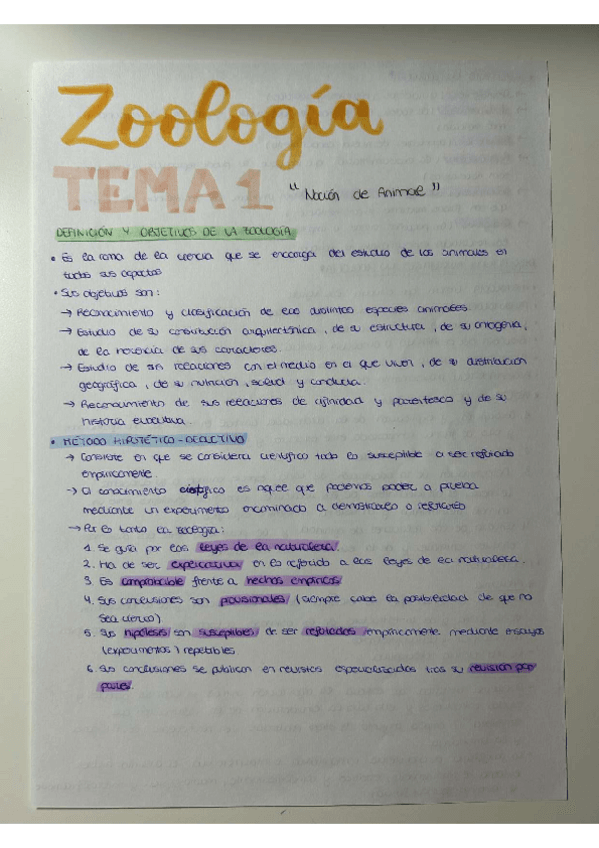 Zoología
TEMA 1 "Noción de Animal"
DEFINICIÓN Y OBJETIVOS DE LA ZOOLOGÍA
• Es la rama de la ciencia que se encarga del estudio de los animales en
todos sus aspectos
• Sus objetivos son:
→ Reconocimiento y clasificación de las distintas especies animales.
→ Estudio de su constitución arquitectónica, de su estructura, de su ontogenia,
de la herencia de sus caracteres.
→ Estudio de sus relaciones con el medio en el que viven, de su distribución
geográfica, de su nutrición, salud y conducta.
→ Reconocimiento de sus relaciones de afinidad y parentesco y de su
historia evolutiva.
• MÉTODO HIPOTÉTICO-DEDUCTIVO
→ Consiste en que se considera científico todo lo susceptible a ser refutado
empíricamente.
→ El conocimiento científico es aquel que podemos poder a prueba
mediante un experimento encaminado a demostrarlo o refutarlo
→ Por lo tanto la zoología:
1. Se guía por las leyes de la naturaleza.
2. Ha de ser explicativa en lo referido a las leyes de la naturaleza.
3. Es comprobable frente a hechos empíricos
4. Sus conclusiones son provisionales (siempre cabe la posibilidad de que no
sea cierto)
5. Sus hipótesis son susceptibles de ser refutadas empíricamente mediante ensayos
(experimentos) repetibles.
6. Sus conclusiones se publican en revistas especializadas tras su revisión por
pares.